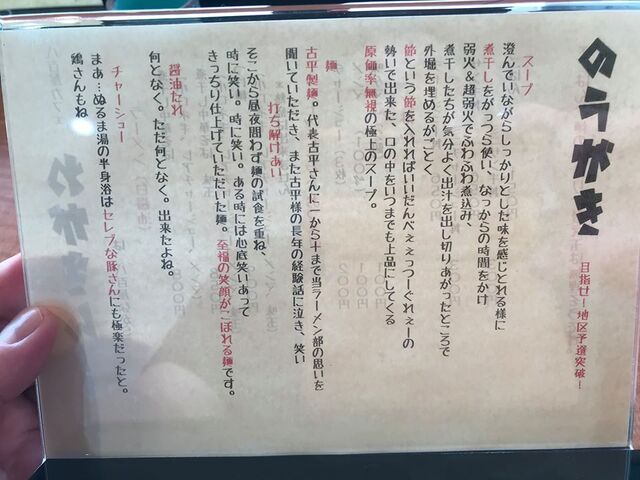 のうがき
目指せー地区予選突破！
スープ
澄んでいながらしっかりとした味を感じとれる様に
煮干しをがっつら使い、なっからの時間をかけ
弱火&超弱火でふわふわ煮込み、
煮干したちが気分よく出汁を出し切りあがったところで
外堀を埋めるがごとく
節という節を入れればいいだんべぇぇっつーぐれぇーの
勢いで出来た、口の中をいつまでも上品にしてくる
原価率無視の極上のスープ。
麺
古平製麺。代表古平さんに一から十まで当ラーメン部の思いを
聞いていただき、また古平様の長年の経験話に泣き、笑い
打ち解けあい
そこから昼夜問わず麺の試食を重ね、
時に笑い。時に笑い。ある時には心底笑いあって
きっちり仕上げていただいた麺。至福の笑顔がこぼれる麺です。
醤油たれ
何となく。ただ何となく。出来たよね。
チャーシュー
まぁ…ぬるま湯の半身浴はセレブな豚さんにも極楽だったと。
鶏さんもね